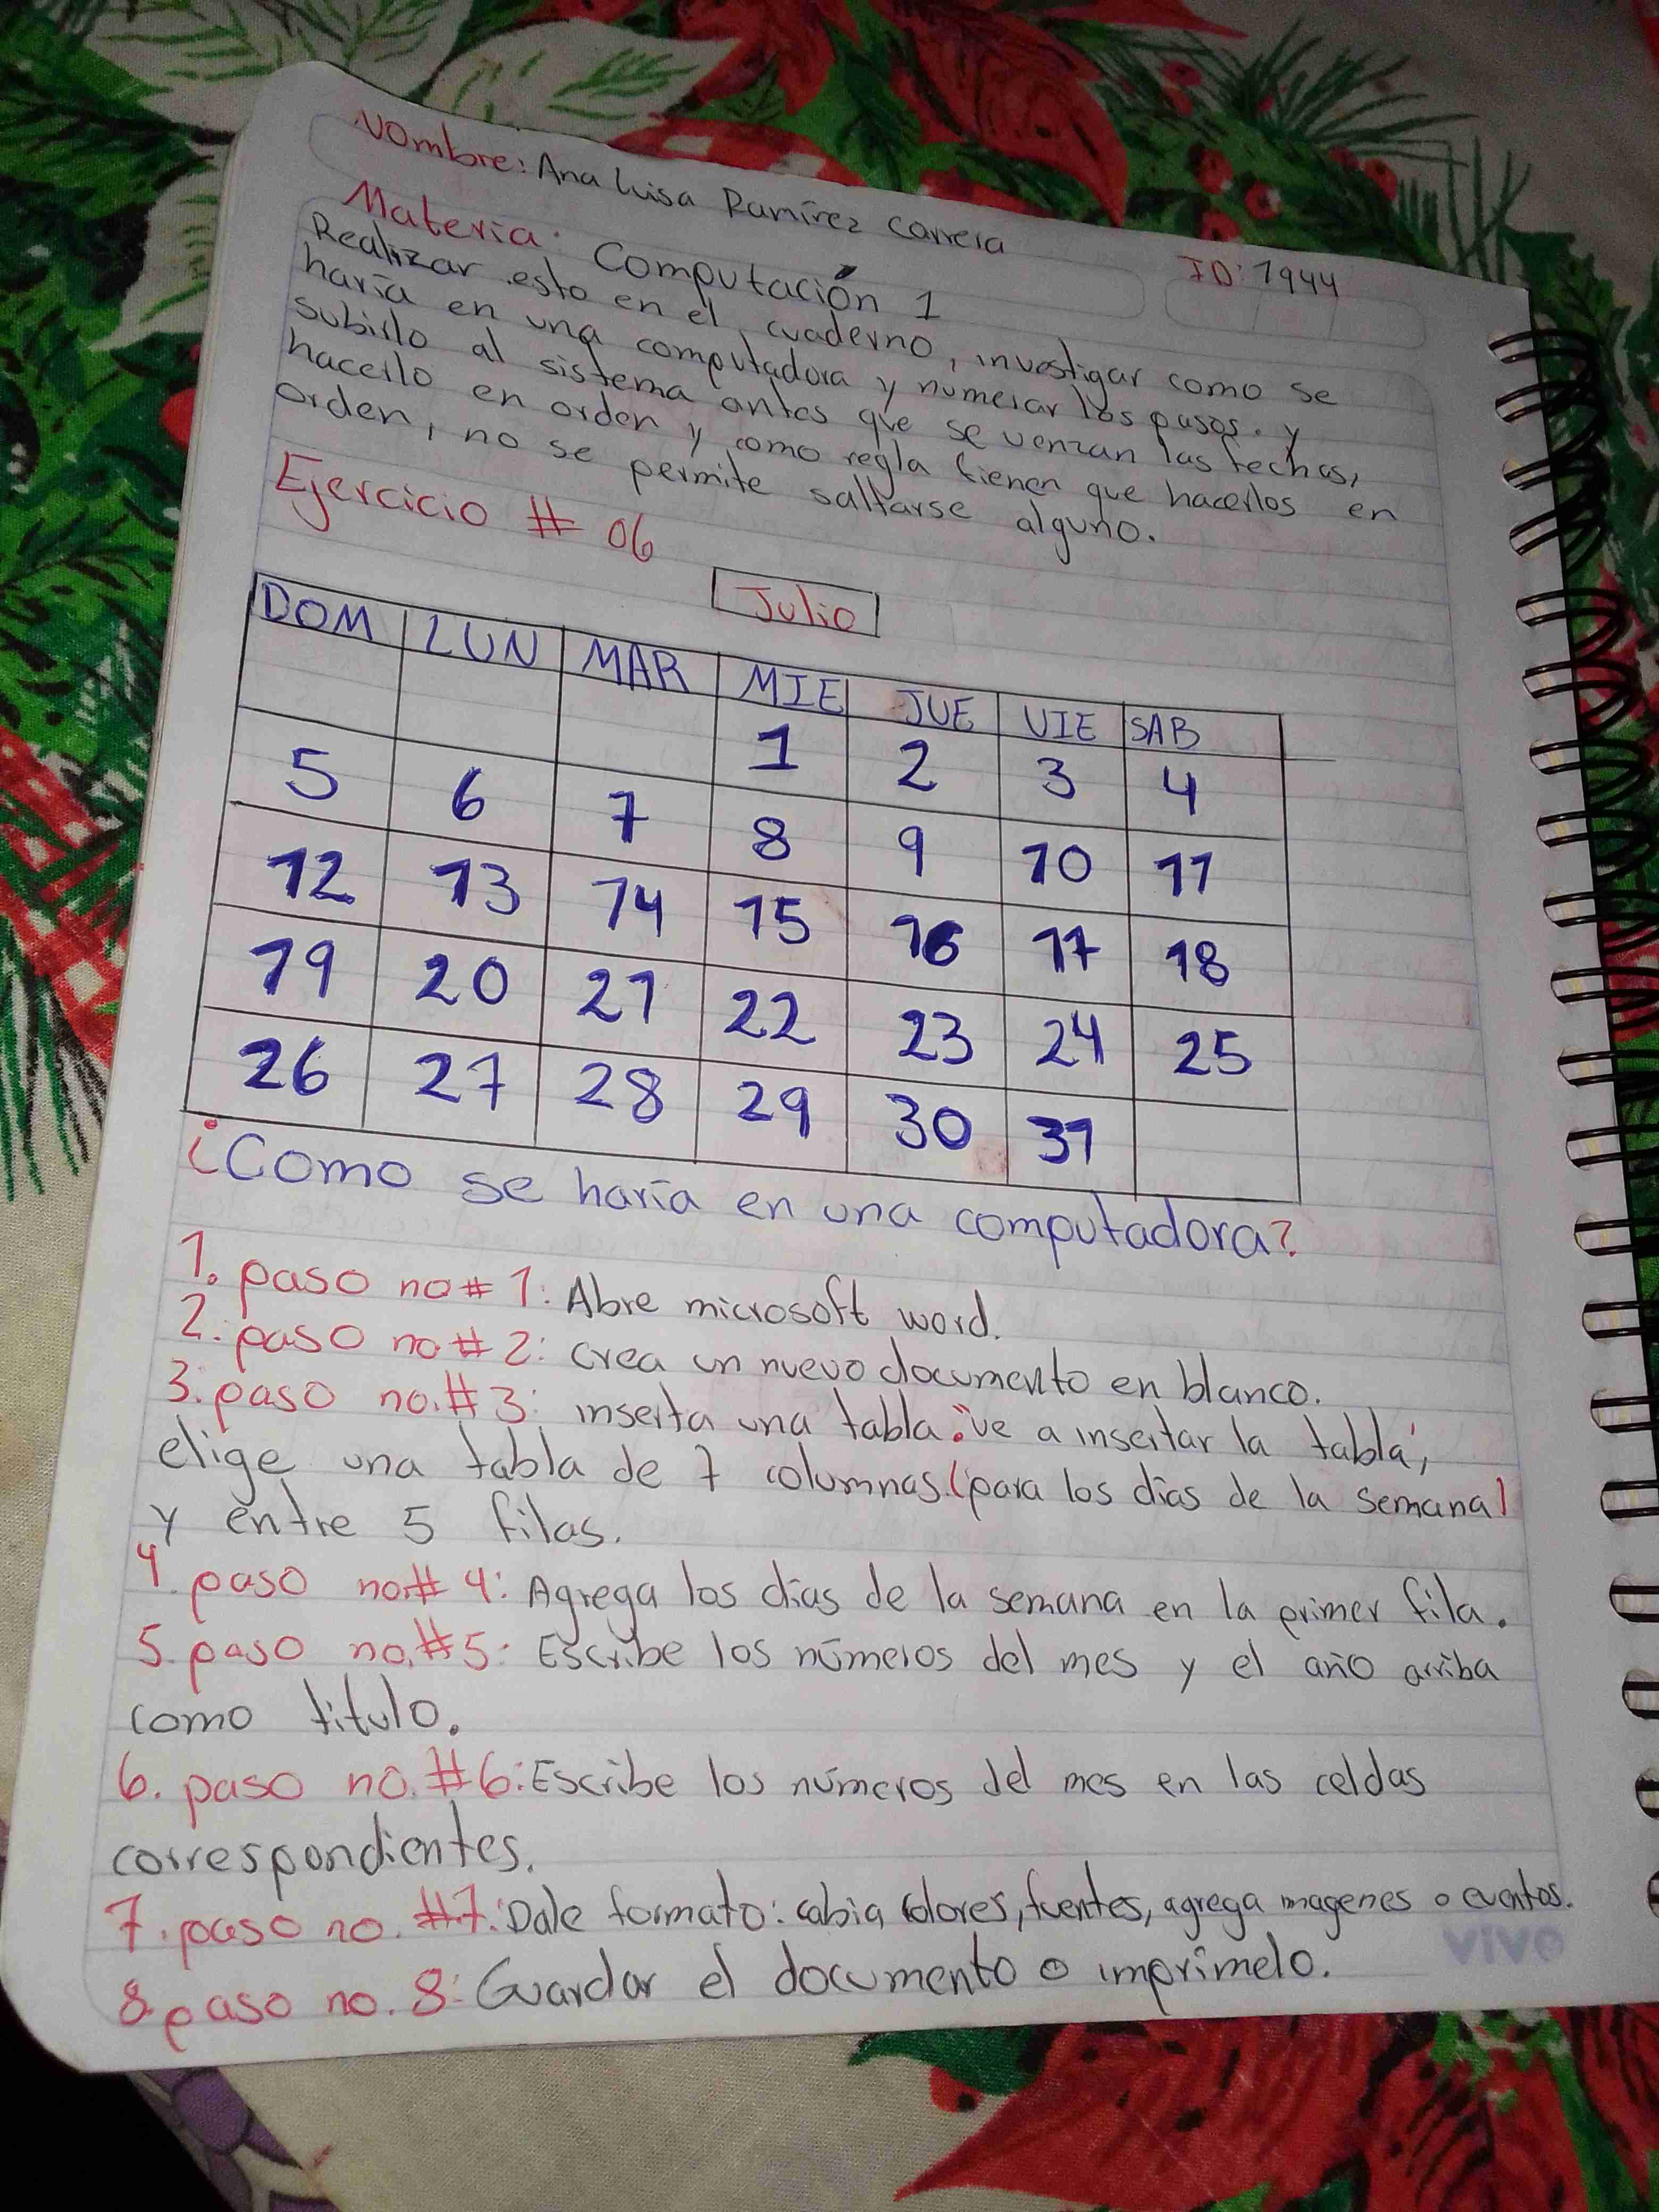 Nombre: Ana Luisa Ramírez Carrera
ID: 1944
Materia: Computación 1
Realizar esto en el cuaderno, investigar como se
haría en una computadora y numerar los pasos. y
subirlo al sistema antes que se venzan las fechas,
hacerlo en orden y como regla tienen que hacerlos en
orden, no se permite saltarse alguno.
Ejercicio # 06
Julio
DOM LUN MAR MIE JUE VIE SAB
1 2 3 4
5 6 7 8 9 10 11
12 13 14 15 16 17 18
19 20 21 22 23 24 25
26 27 28 29 30 31
¿Como se haría en una computadora?
1. paso no # 1: Abre microsoft word.
2. paso no. # 2: crea un nuevo documento en blanco.
3. paso no. # 3: inserta una tabla: "ve a insertar la tabla",
elige una tabla de 7 columnas. (para los días de la semana)
y entre 5 filas.
4. paso no. # 4: Agrega los días de la semana en la primer fila.
5. paso no. # 5: Escribe los números del mes y el año arriba
como titulo.
6. paso no. # 6: Escribe los números del mes en las celdas
correspondientes.
7. paso no. # 7: Dale formato: cabia colores, fuentes, agrega magenes o eventos.
8. paso no. 8: Guardar el documento o imprímelo.
vivo